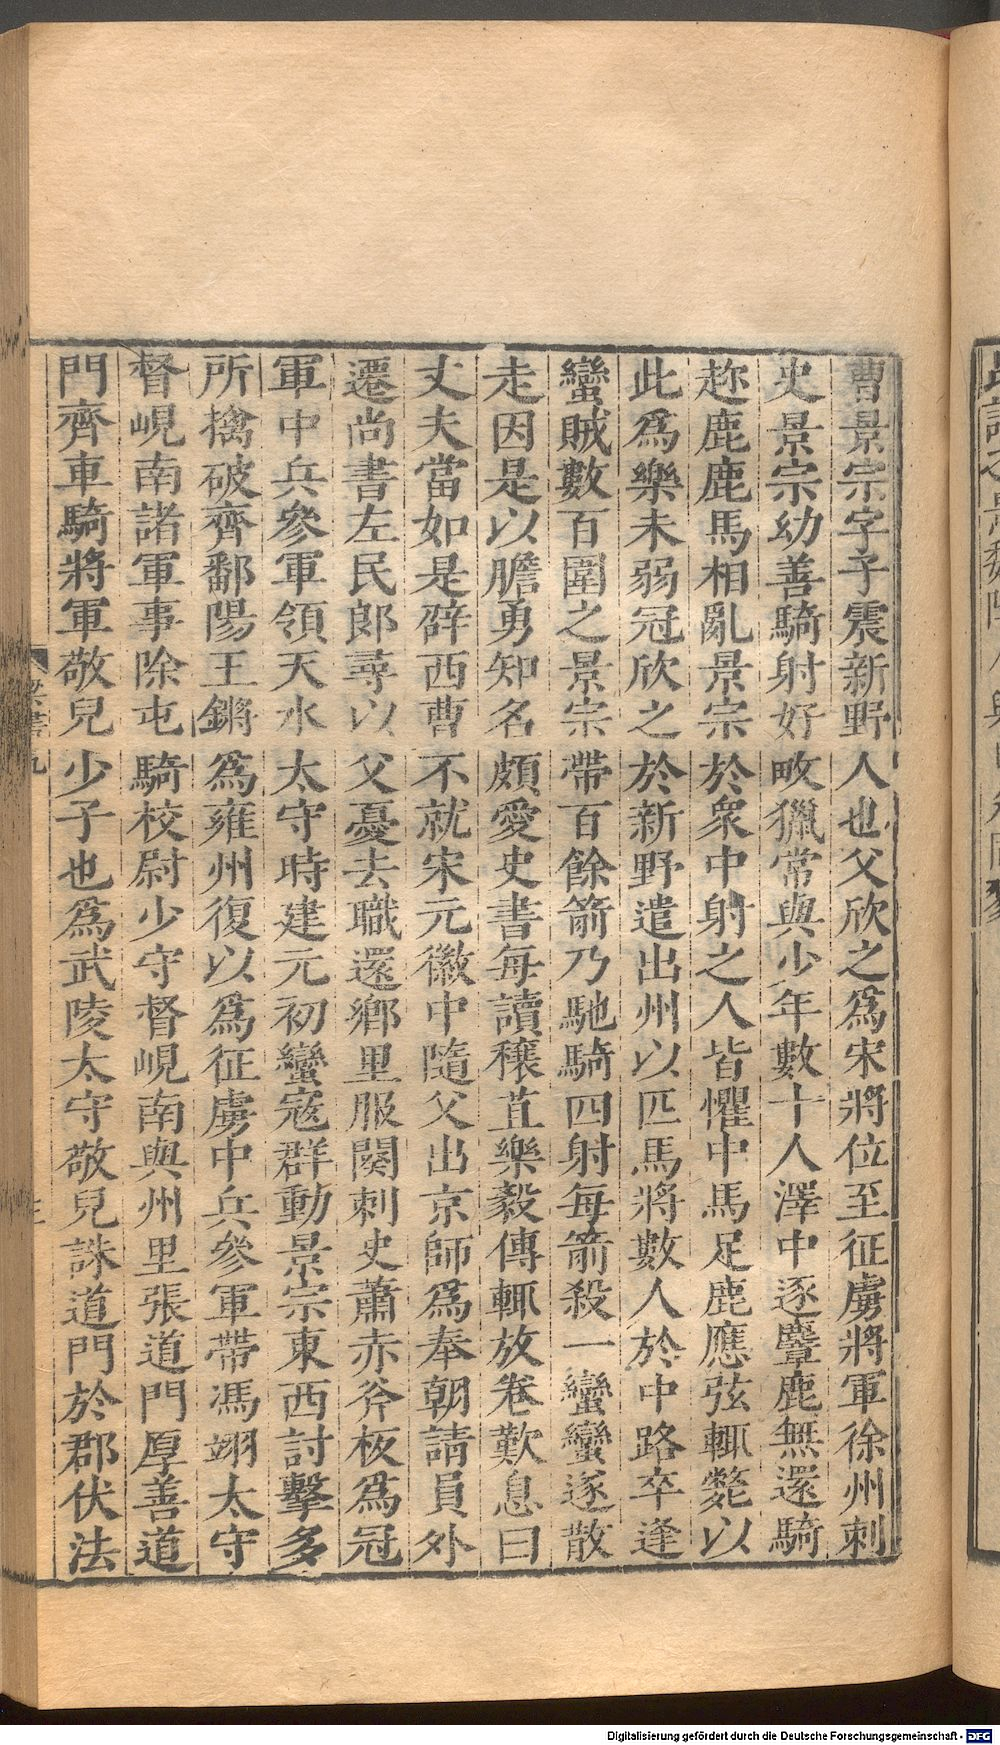 曹景宗字子震新野人也父欣之爲宋將位至征虜將軍徐州刺
史景宗幼善騎射好畋獵常與少年數十人澤中逐麞鹿無還騎
趂鹿鹿馬相亂景宗於衆中射之人皆懼中馬足鹿應弦輒斃以
此爲樂未弱冠欣之於新野遣出州以匹馬將數人於中路卒逢
蠻賊數百圍之景宗帶百餘箭乃馳騎四射每箭殺一蠻蠻遂散
走因是以膽勇知名頗愛史書每讀穰苴樂毅傳輒放卷歎息曰
丈夫當如是辟西曹不就宋元徽中隨父出京師爲奉朝請員外
遷尚書左民郎尋以父憂去職還鄉里服闋刺史蕭赤斧板爲冠
軍中兵參軍領天水太守時建元初蠻寇群動景宗東西討擊多
所擒破齊鄱陽王鏘爲雍州復以爲征虜中兵參軍帶馮翊太守
督峴南諸軍事除屯騎校尉少守督峴南與州里張道門厚善道
門齊車騎將軍敬兒少子也爲武陵太守敬兒誅道門於郡伏法
梁書九
Digitalisierung gefördert durch die Deutsche Forschungsgemeinschaft - DFG